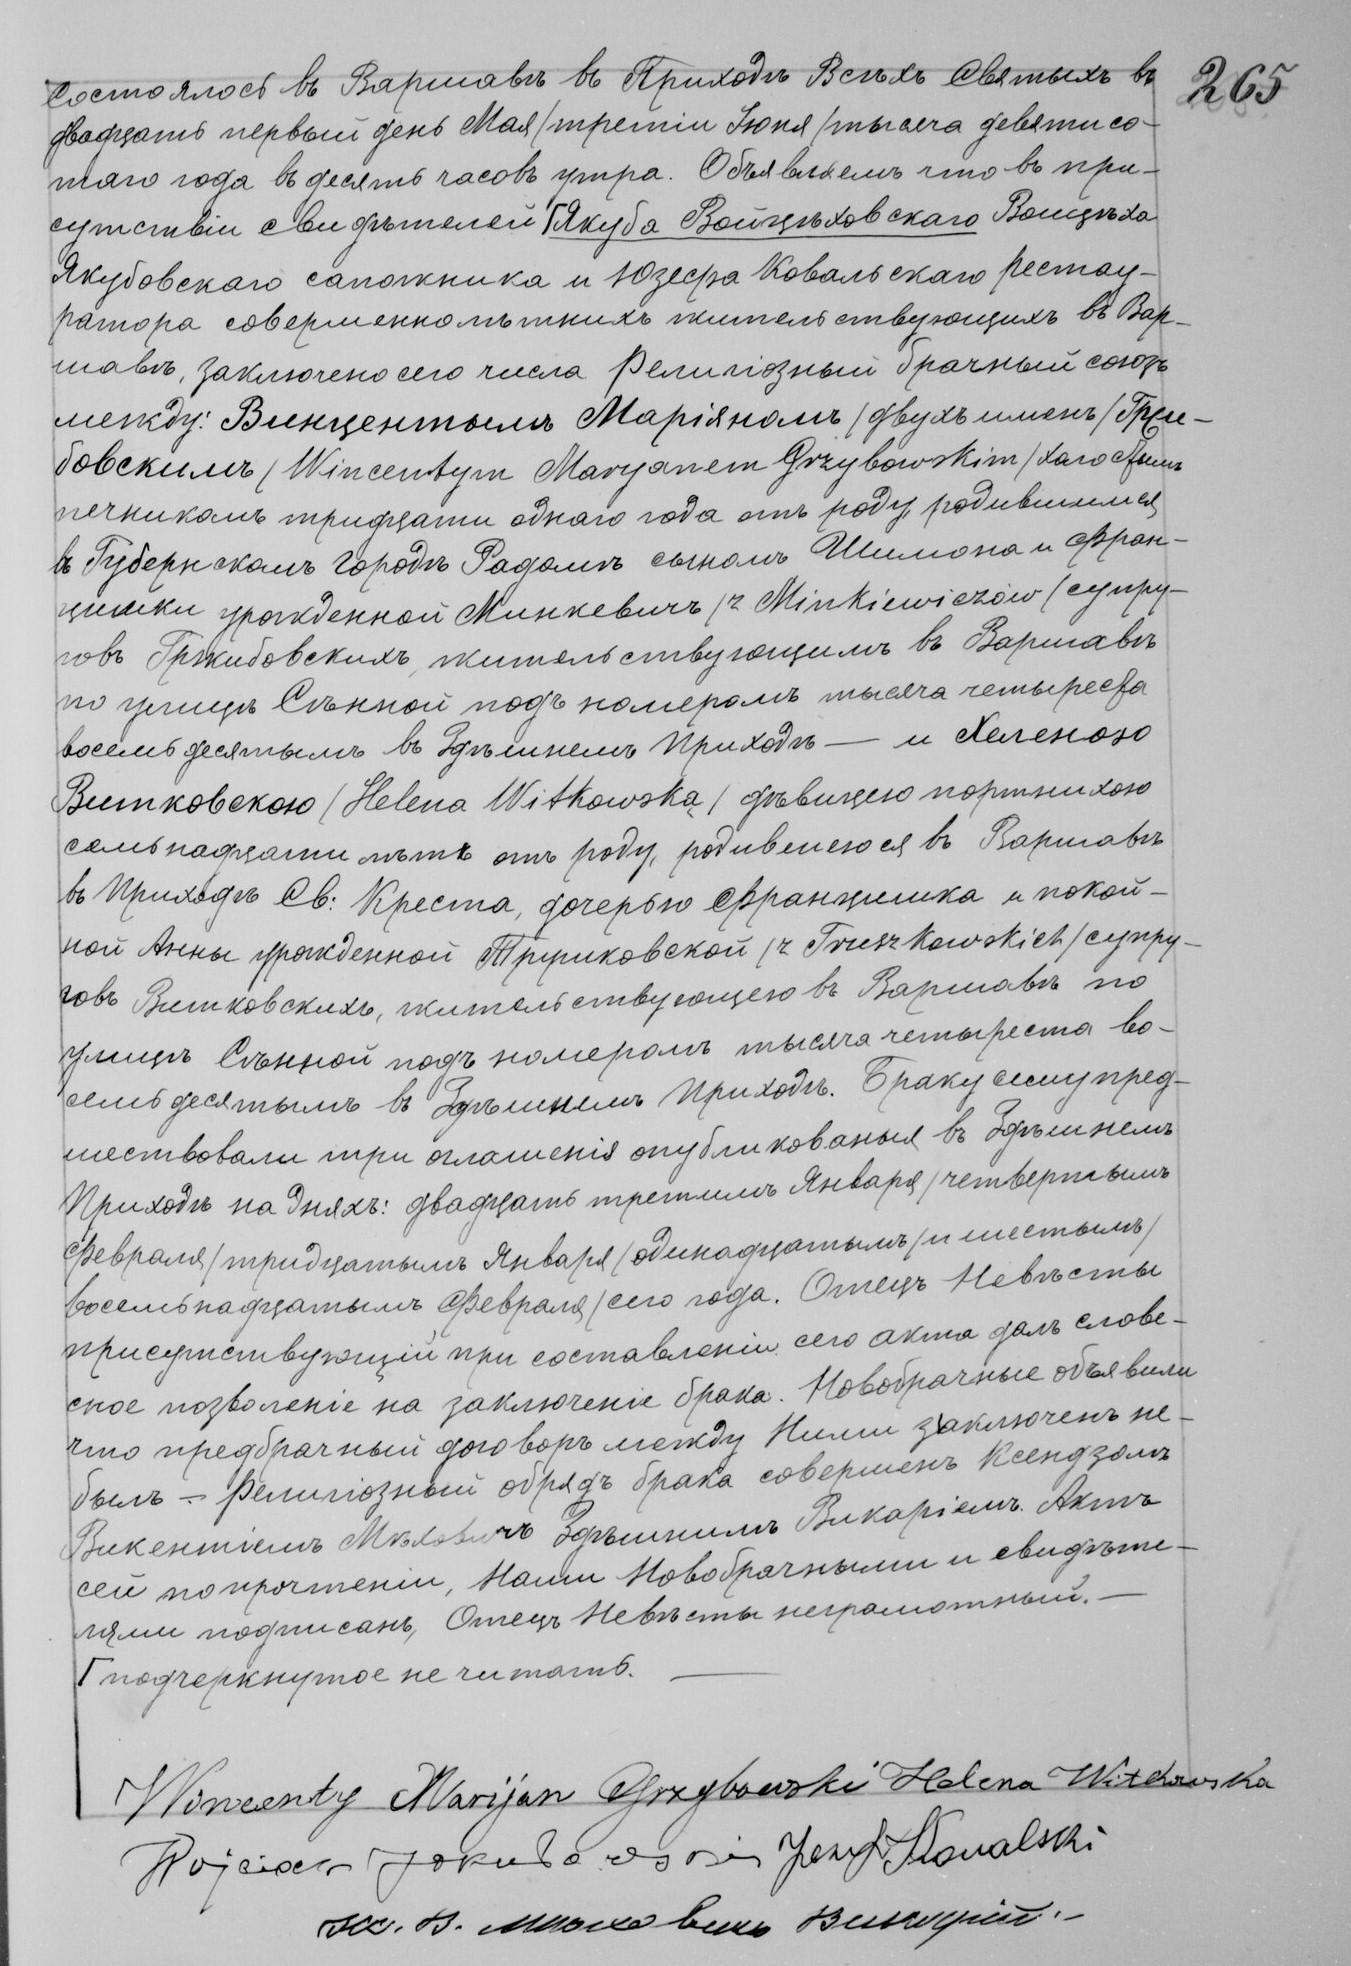 265
Состоялось въ Варшавѣ въ Приходѣ Всѣхъ Святыхъ въ
двадцать первый день Мая /третій Іюня/ тысяча девятисо-
таго года въ десять часовъ утра. Объявляемъ что въ при-
сутствіи свидѣтелей Г Якуба Войцѣховскаго Войцѣха
Якубовскаго сапожника и Юзефа Ковальскаго рестау-
ратора совершеннолѣтнихъ жительствующихъ въ Вар-
шавѣ, заключено сего числа Религіозный брачный союзъ
между: Винцентымъ Маріяномъ /двухъ именъ/ Гржи-
бовскимъ /Wincentym Maryanem Grzybowskim/ холостымъ
печникомъ тридцати однаго года отъ роду, родившимся
въ Губернскомъ Городѣ Радомѣ сыномъ Шимона и Фран-
цишки урожденной Минкевичъ /z Minkiewiczów/ супру-
говъ Гржибовскихъ, жительствующимъ въ Варшавѣ
по улицѣ Сѣнной подъ номеромъ тысяча четыреста
восемьдесятымъ въ Здѣшнемъ Приходѣ — и Хеленою
Витковскою /Helena Witkowską/ дѣвицею портнихою
семьнадцати лѣтъ отъ роду, родившеюся въ Варшавѣ
въ Приходѣ Св: Креста, дочерью Францишка и покой-
ной Анны урожденной Трушковской /z Truszkowskich/ супру-
говъ Витковскихъ, жительствующею въ Варшавѣ по
улицѣ Сѣнной подъ номеромъ тысяча четыреста во-
семьдесятымъ въ Здѣшнемъ Приходѣ. Браку сему пред-
шествовали три оглашенія опубликованыя въ Здѣшнемъ
Приходѣ на Дняхъ: двадцать третьимъ Января /четвертымъ
Февраля/ тридцатымъ Января /одинадцатымъ/ и шестымъ/
восемьнадцатымъ Февраля/ сего года. Отецъ Невѣсты
присутствующій при составленіи сего акта далъ слове-
сное позволеніе на заключеніе брака. Новобрачные объявили
что предбрачный договоръ между Ними заключенъ не-
былъ — Религіозный обрядъ брака совершенъ Ксендзомъ
Викентіемъ Мѣховичъ Здѣшнимъ Викаріемъ. Актъ
сей по прочтеніи, Нами Новобрачными и свидѣте-
лями подписанъ, Отецъ Невѣсты неграмотный. —
Г подчеркнутое не читать. —
Wincenty Marijan Grzybowski Helena Witkowska
Wojciech Jakubowski Józef Kowalski
Кс. В. Мѣховичъ Викарій. —